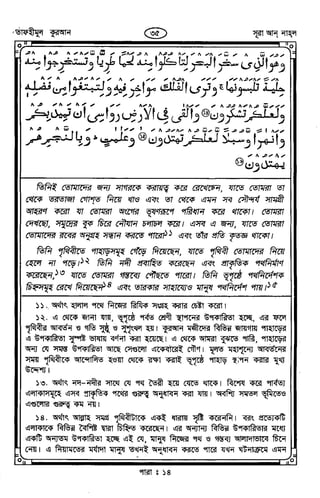 তাফহীমুল কুরআন
৩৫
সূরা আন্ নাহল
وَهُوَ الَّذِي سَخَّرَ الْبَحْرَ لِتَأْكُلُوا مِنْهُ لَحْمًا طَرِيًّا وَتَسْتَخْرِجُوا مِنْهُ
حِلْيَةً تَلْبَسُونَهَا ۚ وَتَرَى الْفُلْكَ مَوَاخِرَ فِيهِ وَلِتَبْتَغُوا مِنْ فَضْلِهِ
وَلَعَلَّكُمْ تَشْكُرُونَ ⑭ وَأَلْقَى فِي الْأَرْضِ رَوَاسِيَ أَنْ تَمِيدَ بِكُمْ
وَأَنْهَارًا وَسُبُلًا لَعَلَّكُمْ تَهْتَدُونَ ⑮ وَعَلَامَاتٍ ۚ وَبِالنَّجْمِ هُمْ
يَهْتَدُونَ ⑯
তিনিই তোমাদের জন্য সাগরকে করায়ত্ব করে রেখেছেন, যাতে তোমরা তা
থেকে তরতাজা গোশত নিয়ে খাও এবং তা থেকে এমন সব সৌন্দর্য সামগ্রী
আহরণ করো যা তোমরা অংগের ভূষণরূপে পরিধান করে থাকো। তোমরা
দেখছো, সমুদ্রের বুক চিরে নৌযান চলাচল করে। এসব এ জন্য, যাতে তোমরা
তোমাদের রবের অনুগ্রহ সন্ধান করতে পারো১১ এবং তাঁর প্রতি কৃতজ্ঞ থাকো।
তিনি পৃথিবীতে পাহাড়সমূহ গেঁড়ে দিয়েছেন, যাতে পৃথিবী তোমাদের নিয়ে
হেলে না পড়ে।১২ তিনি নদী প্রবাহিত করেছেন এবং প্রাকৃতিক পথনির্মাণ
করেছেন,১৩ যাতে তোমরা গন্তব্যে পৌঁছতে পারো। তিনি ভূপৃষ্ঠে পথনির্দেশক
চিহ্নসমূহ রেখে দিয়েছেন১৪ এবং তারকার সাহায্যেও মানুষ পথনির্দেশ পায়।১৫
১১. অর্থাৎ হালাল পথে নিজের রিযিক সংগ্রহ করার চেষ্টা করো।
১২. এ থেকে জানা যায়, ভূপৃষ্ঠে পর্বত শ্রেণী স্থাপনের উপকারিতা হচ্ছে, এর ফলে
পৃথিবীর আবর্তন ও গতি সুষ্ঠু ও সুশৃংখল হয়। কুরআন মজীদের বিভিন্ন জায়গায় পাহাড়ের
এ উপকারিতা সুস্পষ্ট ভাষায় বর্ণনা করা হয়েছে। এ থেকে আমরা বুঝতে পারি, পাহাড়ের
অন্য যে সমস্ত উপকারিতা আছে সেগুলো একেবারেই গৌণ। মূলত মহাশূন্যে আবর্তনের
সময় পৃথিবীকে আন্দোলিত হওয়া থেকে রক্ষা করাই ভূপৃষ্ঠে পাহাড় স্থাপন করার মুখ্য
উদ্দেশ্য।
১৩. অর্থাৎ নদ-নদীর সাথে যে পথ তৈরী হয়ে যেতে থাকে। বিশেষ করে পার্বত্য
এলাকাসমূহে এসব প্রাকৃতিক পথের গুরুত্ব অনুধাবন করা যায়। অবশ্যি সমতল ভূমিতেও
এগুলোর গুরুত্ব কম নয়।
১৪. অর্থাৎ আল্লাহ সমগ্র পৃথিবীটাকে একই ধারায় সৃষ্টি করেননি। বরং প্রত্যেকটি
এলাকাকে বিভিন্ন বৈশিষ্ট দ্বারা চিহ্নিত করেছেন। এর অন্যান্য বিভিন্ন উপকারিতার মধ্যে
একটি অন্যতম উপকারিতা হচ্ছে এই যে, মানুষ নিজের পথ ও গন্তব্য আলাদাভাবে চিনে
নেয়। এ নিয়ামতের মর্যাদা মানুষ তখনই অনুধাবন করতে পারে যখন ঘটনাক্রমে এমন
পারা : ১৪